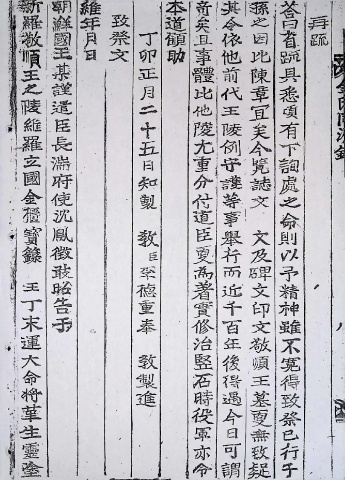 再疏
答曰省疏具悉頃有下詢處之命則以予精神雖不寃得致祭已行子
孫之因此陳章宜矣今覽誌文 文及碑文印文敬順王墓更無致疑
其令依他前代王陵例守護等事舉行而近千百年後得遇今日可謂
奇矣且事體比他陵尤重分付道臣更爲著實修治竪石時役軍亦令
本道顧助
丁卯正月二十五日知製 敎臣 德重奉 敎製進
致祭文
維年月日
朝鮮國王某謹遣臣長湍府使沈鳳徵敢昭告于
新羅敬順王之陵維羅立國金櫃寶籙 王丁末運大命將革生靈塗
八